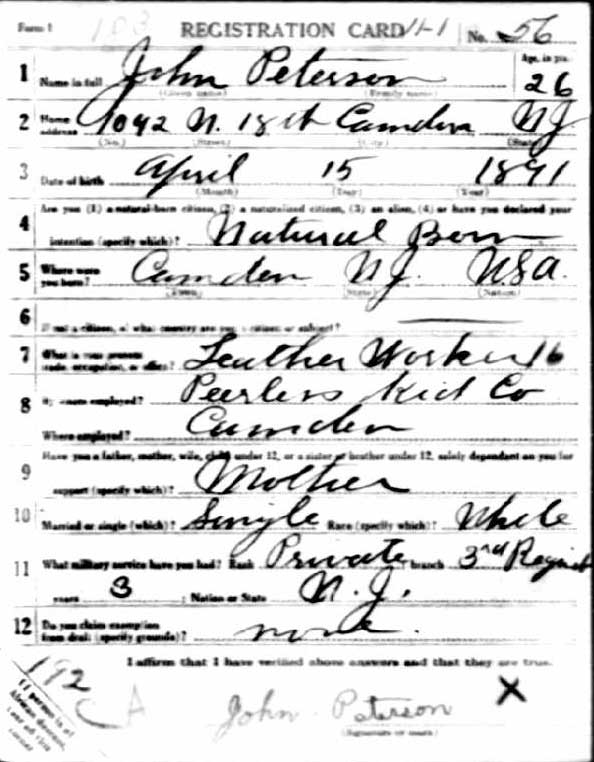 Form 1 103 REGISTRATION CARD 11-1 No. 56
1 Name in full John Peterson Age, in yrs. 26
(Given name) (Family name)
2 Home address 1042 N. 18th Camden NJ
(No.) (Street) (City) (State)
3 Date of birth April 15 1891
(Month) (Day) (Year)
4 Are you (1) a natural-born citizen, (2) a naturalized citizen, (3) an alien, (4) or have you declared your
intention (specify which)? Natural Born
5 Where were you born? Camden NJ. U.S.A.
(Town) (State) (Nation)
6 If not a citizen, of what country are you a citizen or subject?
7 What is your present trade, occupation, or office? Leather Worker 16
8 By whom employed? Peerless Kid Co
Where employed? Camden
9 Have you a father, mother, wife, child under 12, or a sister or brother under 12, solely dependent on you for
support (specify which)? Mother
10 Married or single (which)? Single Race (specify which)? White
11 What military service have you had? Rank Private branch 3rd Regiment
years 3 ; Nation or State N.J.
12 Do you claim exemption from draft (specify grounds)? none.
I affirm that I have verified above answers and that they are true.
192
If person is of
African descent,
tear off this
corner
CA
John Peterson X
(Signature or mark)